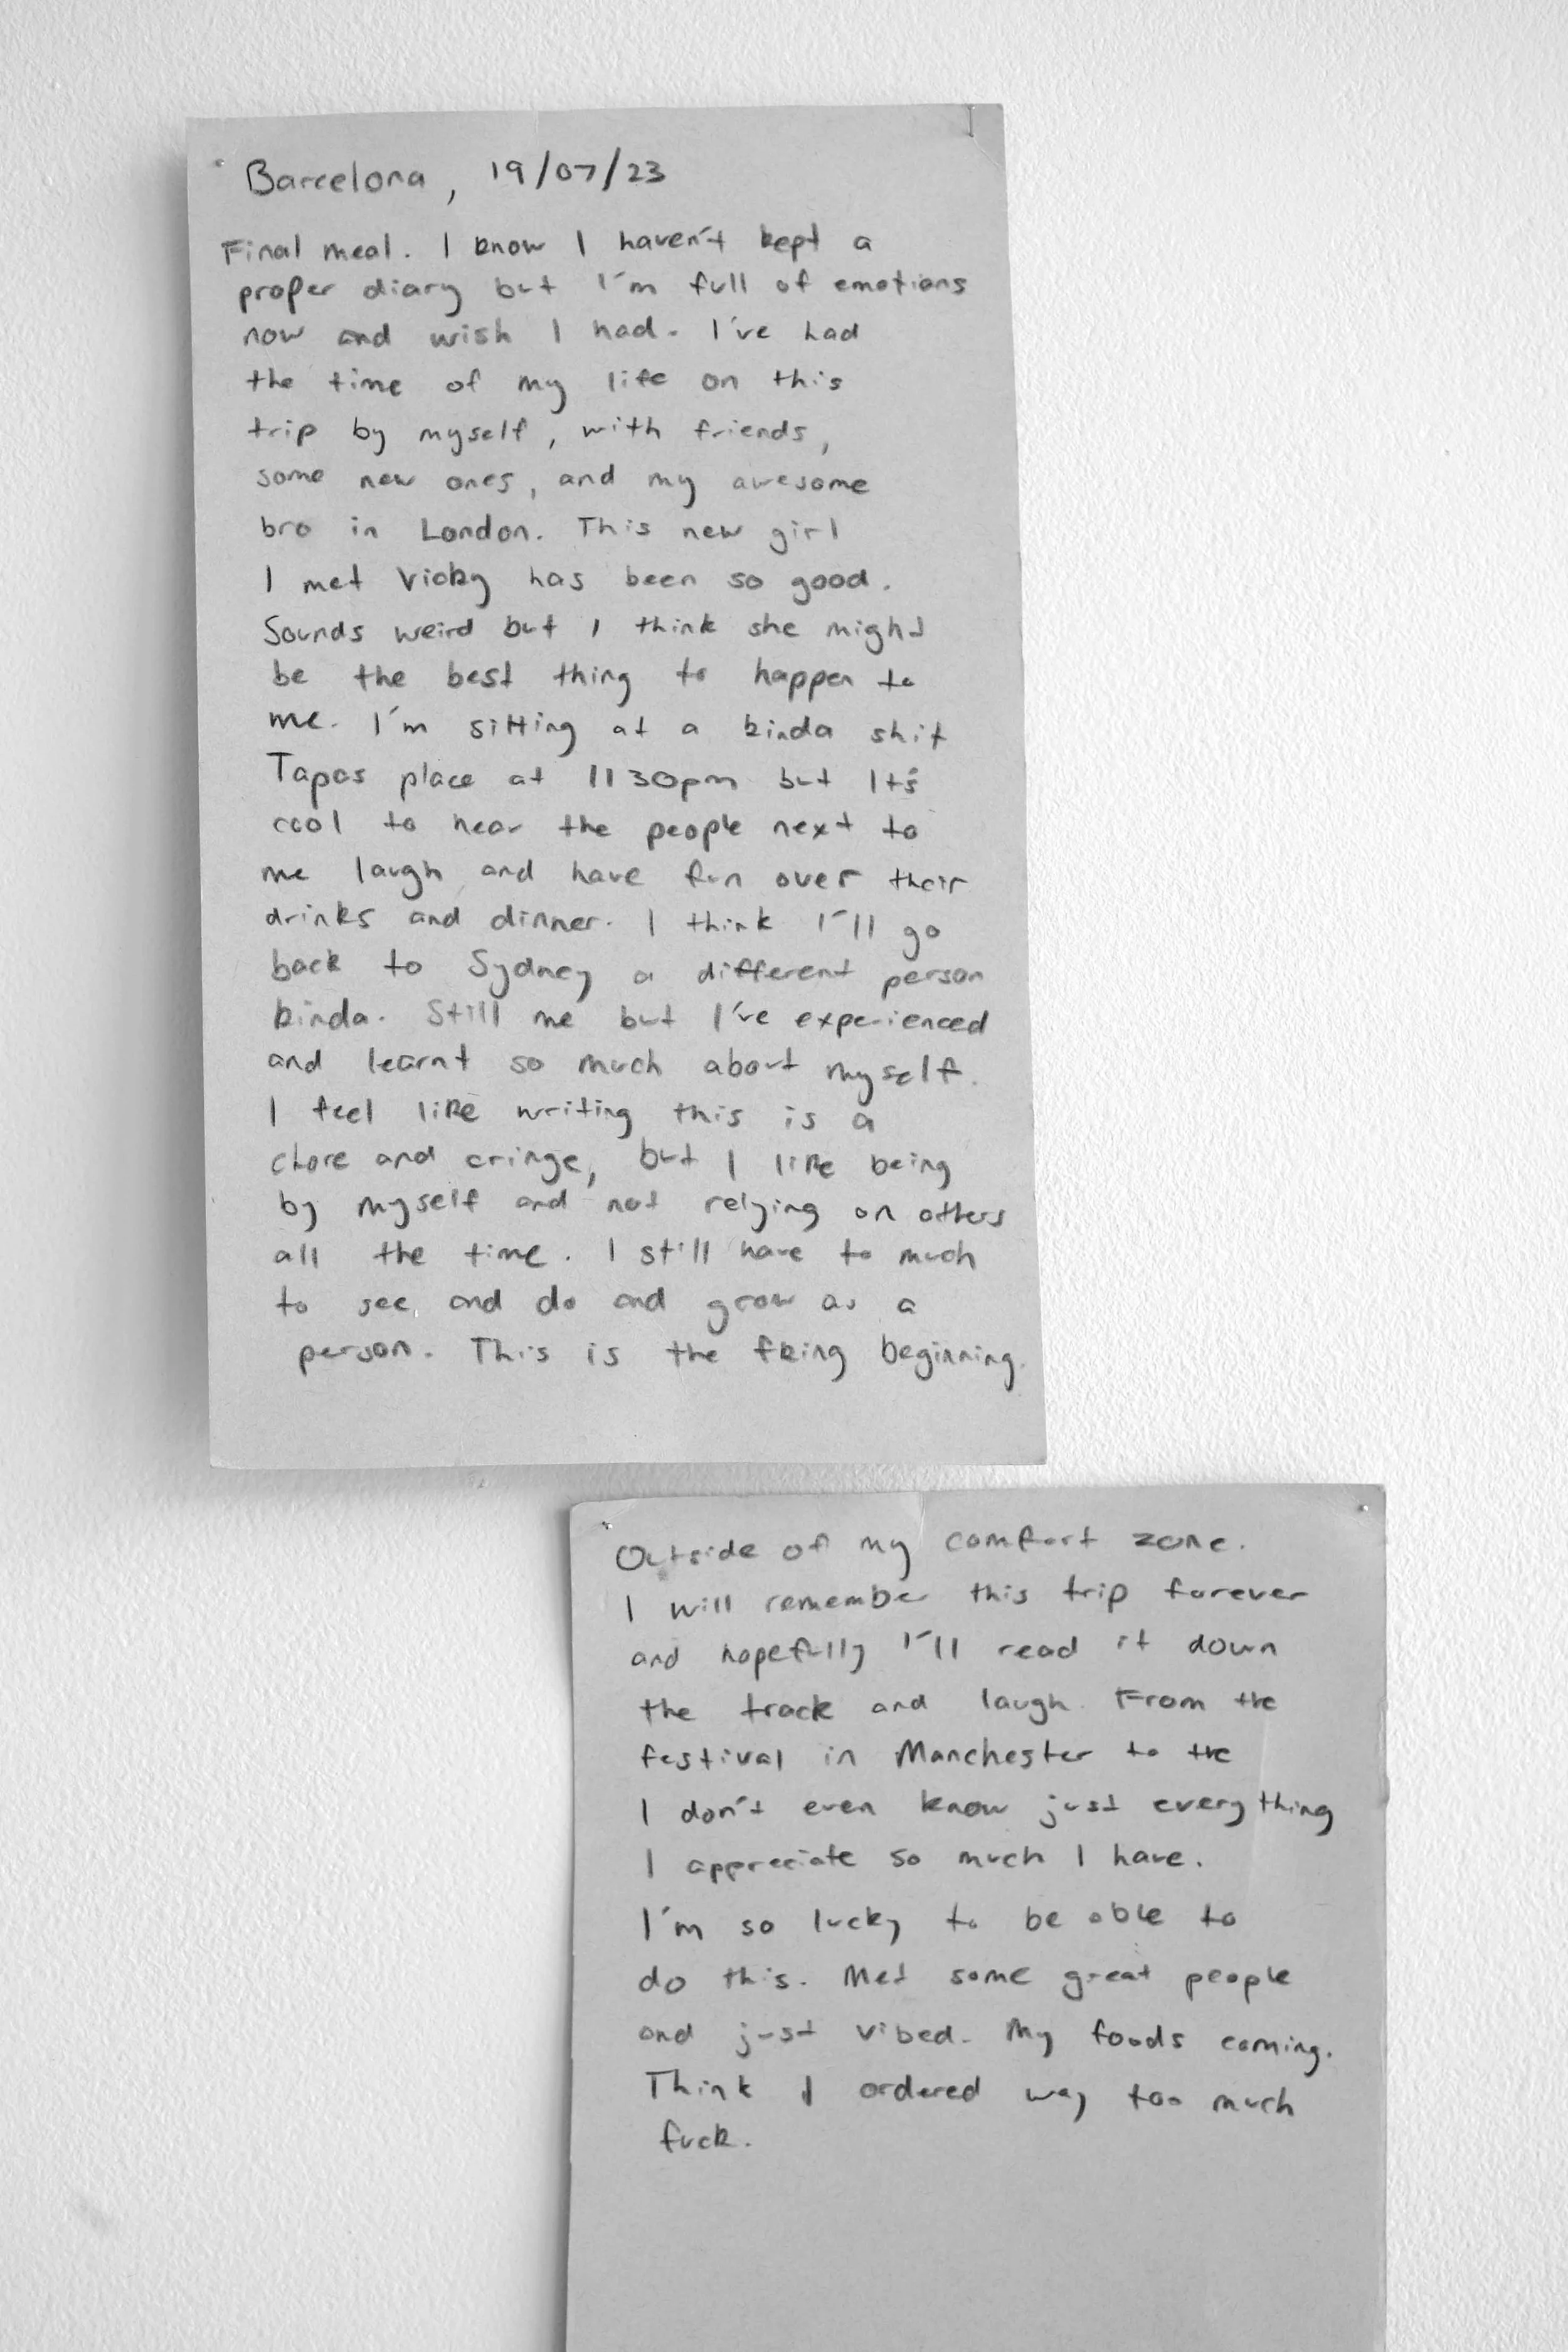 Barcelona, 19/07/23
Final meal. I know I haven't kept a
proper diary but I'm full of emotions
now and wish I had. I've had
the time of my life on this
trip by myself, with friends,
some new ones, and my awesome
bro in London. This new girl
I met Vicky has been so good.
Sounds weird but I think she might
be the best thing to happen to
me. I'm sitting at a kinda shit
Tapas place at 1130pm but It's
cool to hear the people next to
me laugh and have fun over their
drinks and dinner. I think I'll go
back to Sydney a different person
kinda. Still me but I've experienced
and learnt so much about myself.
I feel like writing this is a
chore and cringe, but I like being
by myself and not relying on others
all the time. I still have to much
to see and do and grow as a
person. This is the fking beginning.
Outside of my comfort zone.
I will remember this trip forever
and hopefully I'll read it down
the track and laugh. From the
festival in Manchester to the
I don't even know just everything
I appreciate so much I have.
I'm so lucky to be able to
do this. Met some great people
and just vibed. My foods coming.
Think I ordered way too much
fuck.